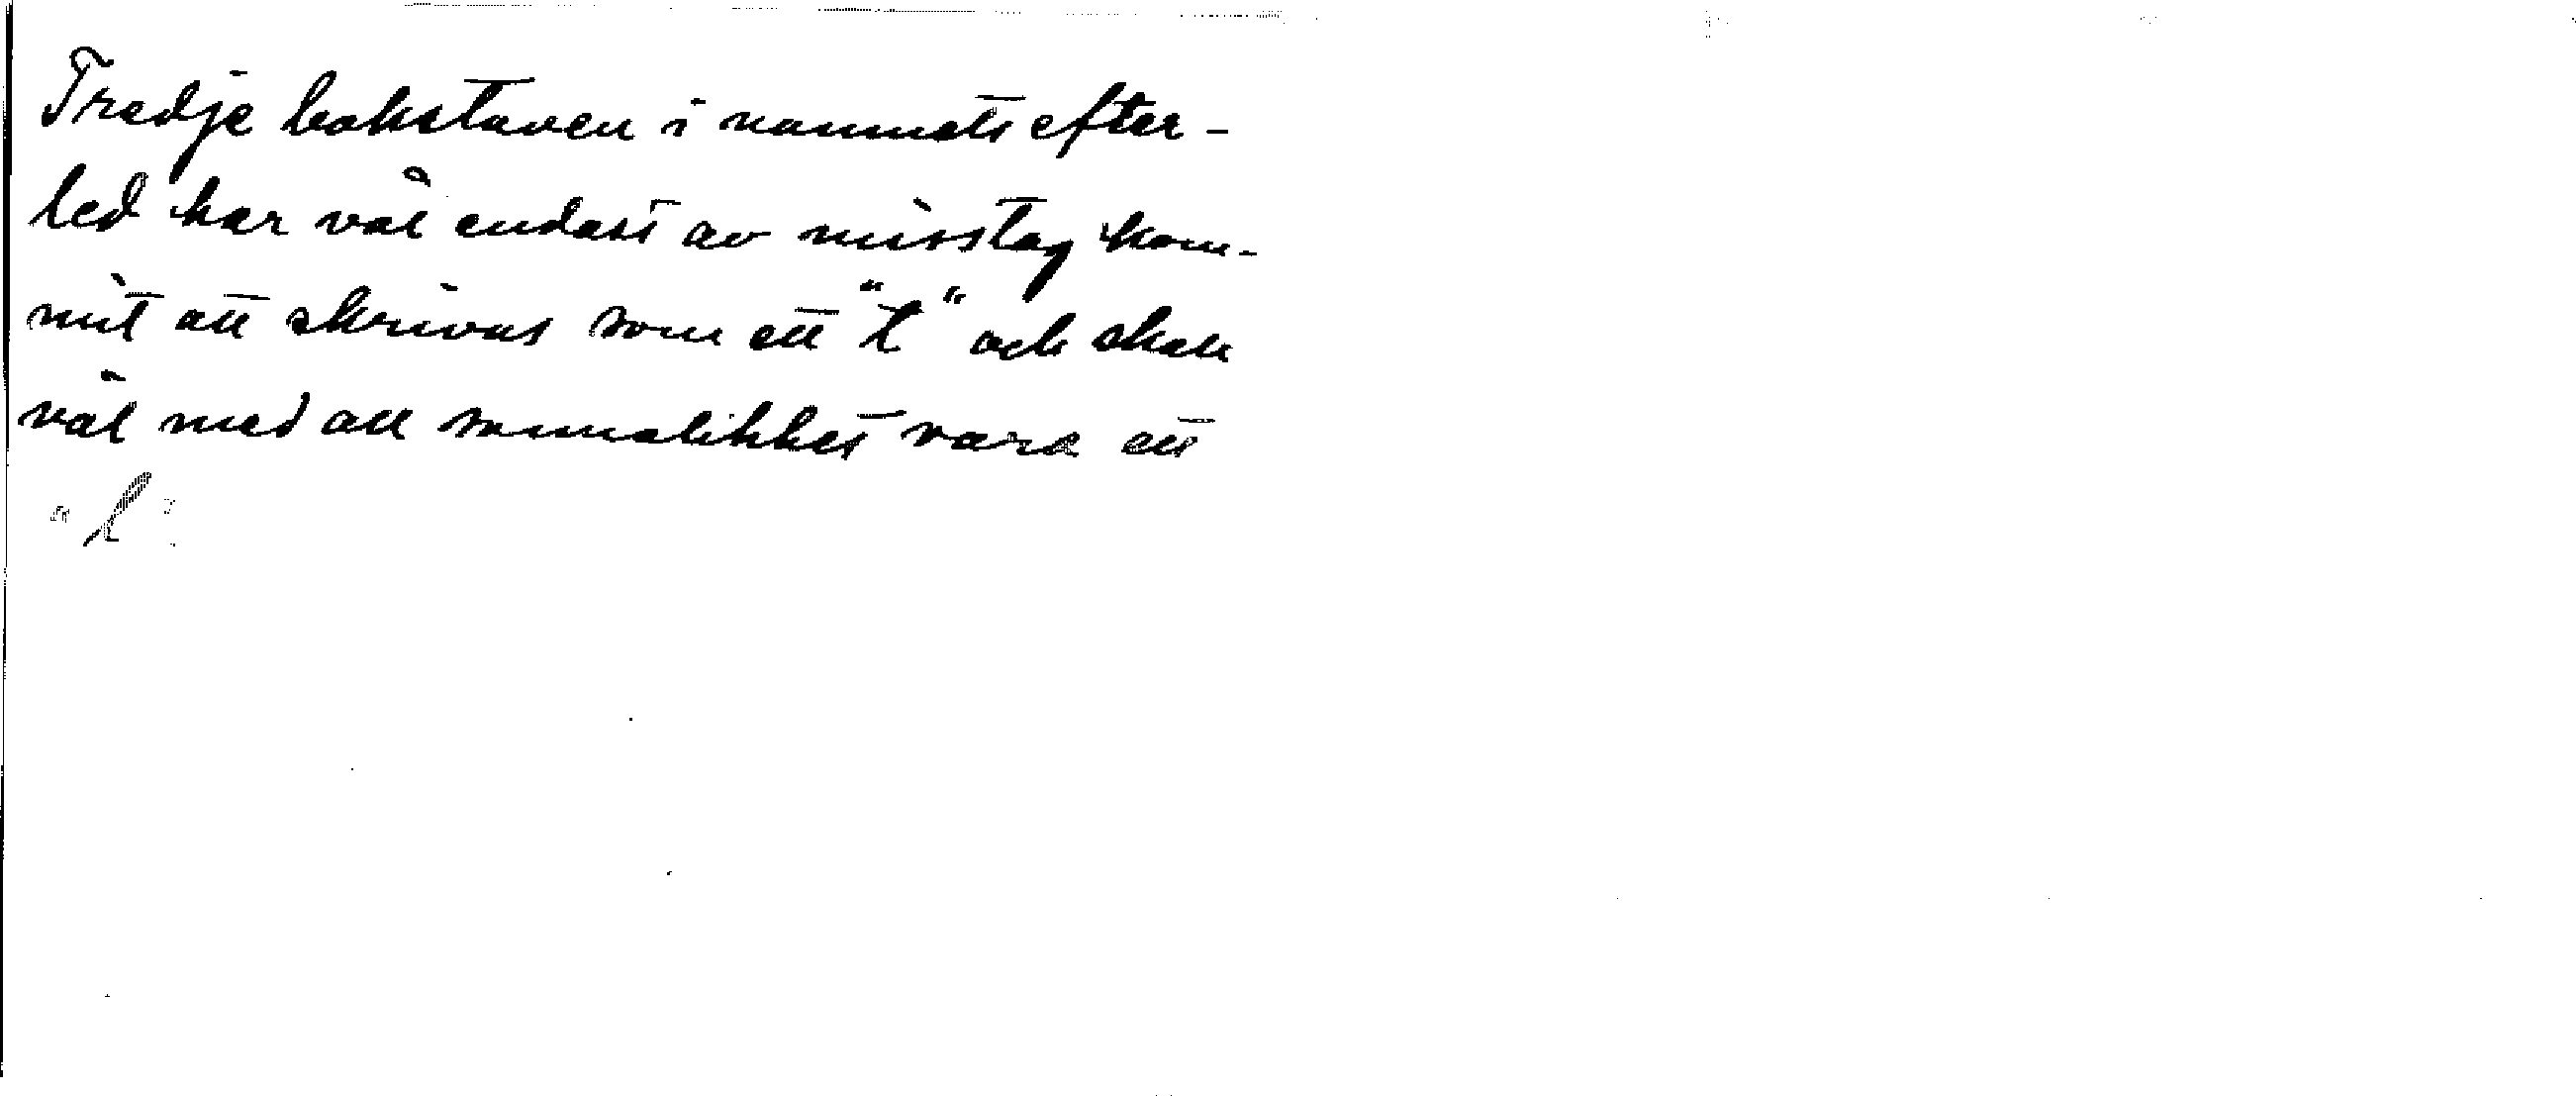 Tredje bokstaven i namnets efter-
led har väl endast av misstag kom-
mit att skrivas som ett "t" och skall
väl med all sannolikhet vara ett
"l".